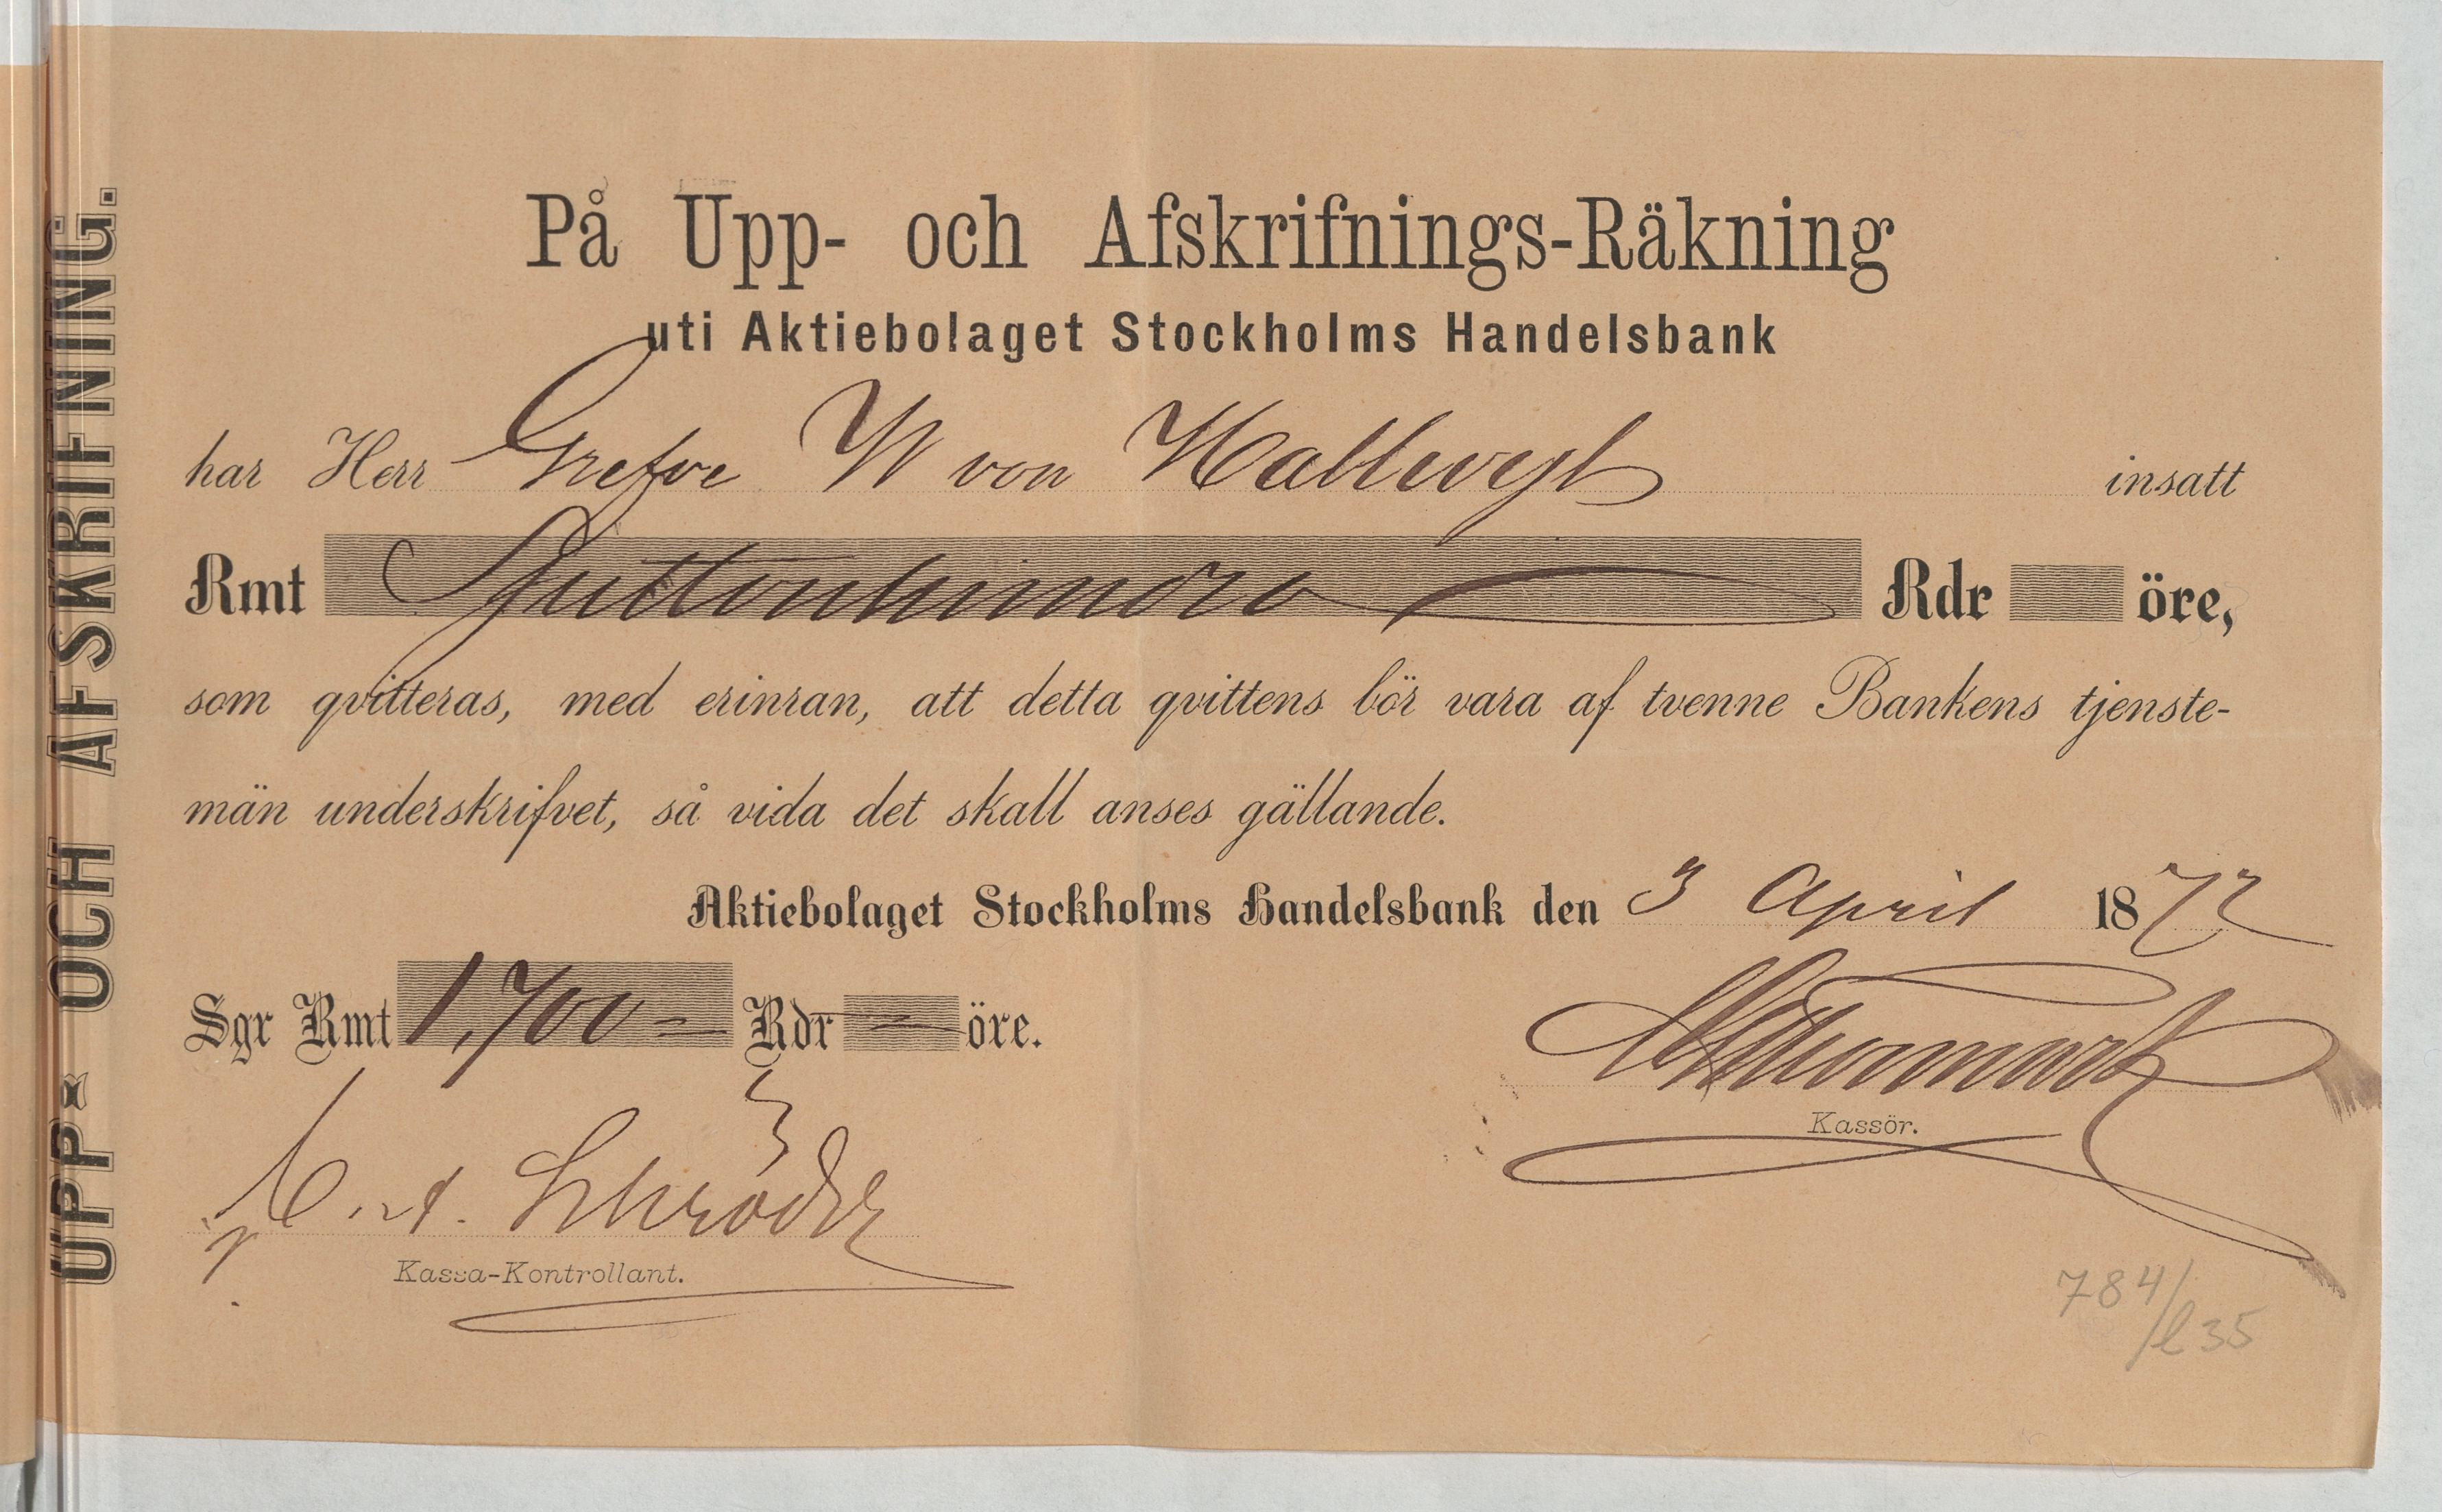 UPP- OCH AFSKRIFNING.
På Upp- och Afskrifnings-Räkning
uti Aktiebolaget Stockholms Handelsbank
har Herr Grefve W von Hallwyl insatt
Rmt Sjuttonhundra Rdr öre,
som qvitteras, med erinran, att detta qvittens bör vara af tvenne Bankens tjenste-
män underskrifvet, så vida det skall anses gällande.
Aktiebolaget Stockholms Handelsbank den 3 April 1872
Sgr Rmt 1,700 = Rdr = öre.
Kassör.
C. A. Schröder
Kassa-Kontrollant.
784/
l 35